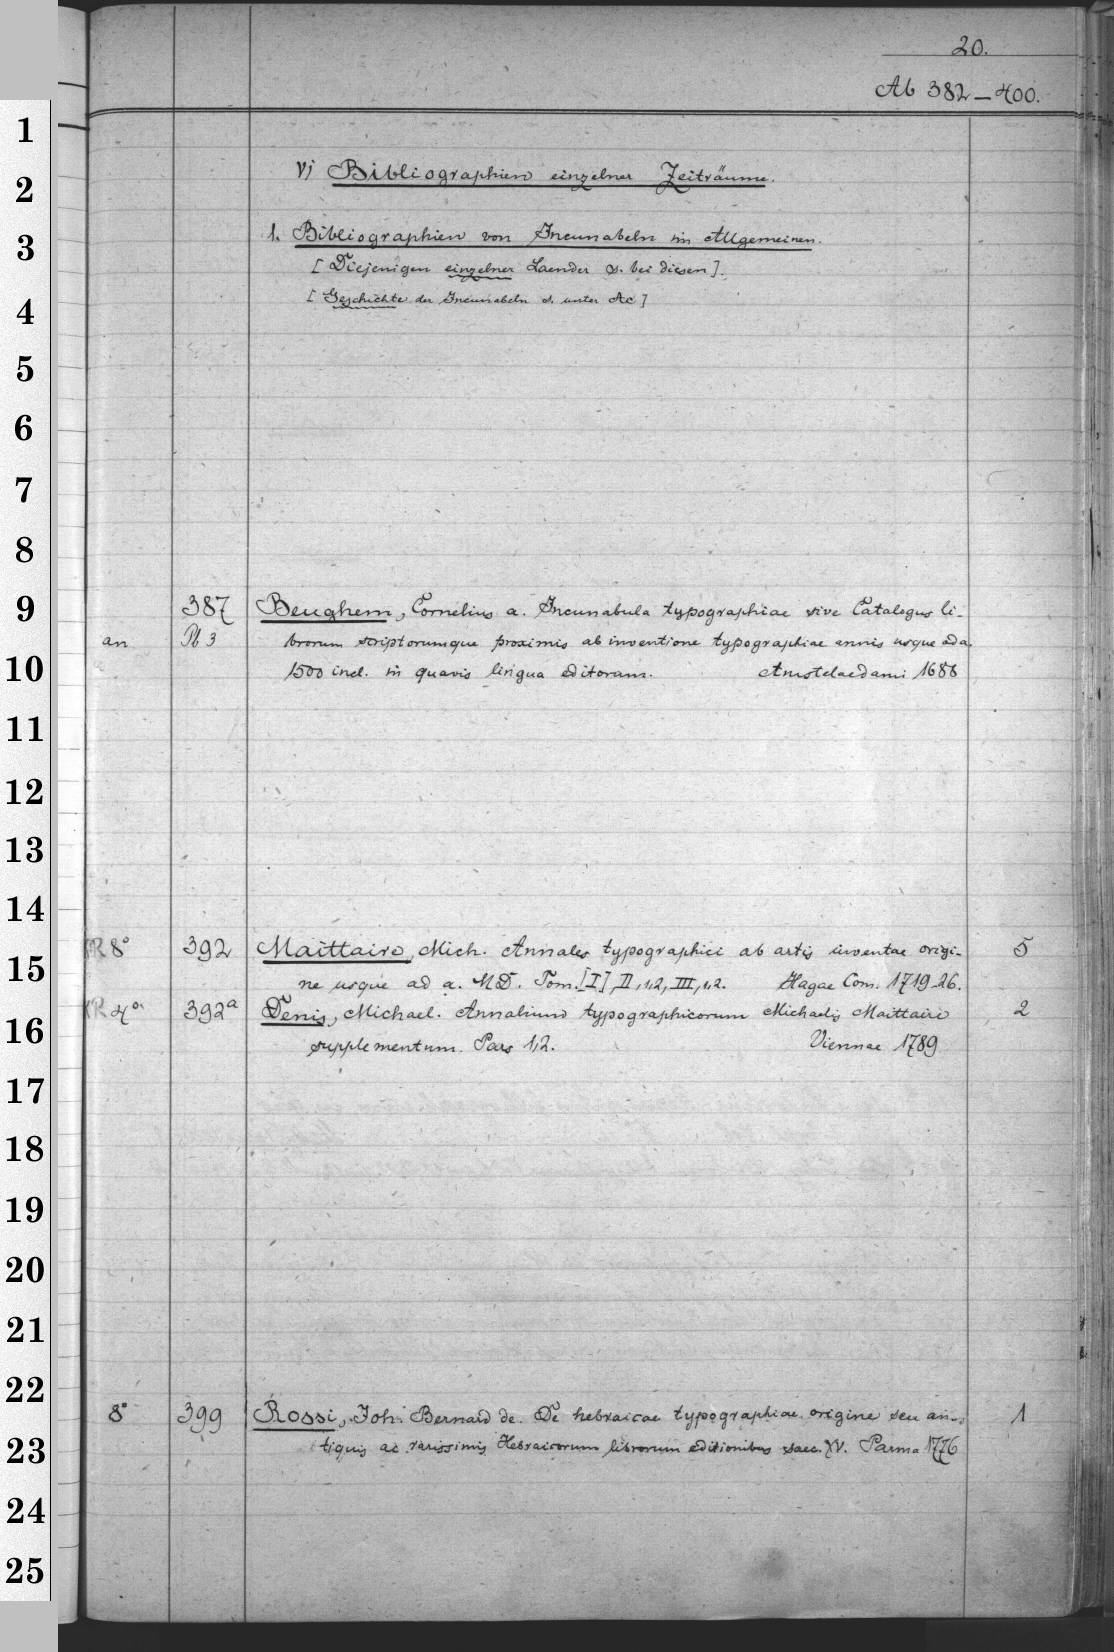 20.
Ab 382–400.
1
2
3
4
5
6
7
8
9
10
11
12
13
14
15
16
17
18
19
20
21
22
23
24
25
V) Bibliographien einzelner Zeiträume.
1. Bibliographien von Incunabeln im Allgemeinen.
[Diejenigen einzelner Laender s. bei diesen].
[Geschichte der Incunabeln s. unter Ac]
387 Beughem, Cornelius a. Incunabula typographiae sive Catalogus li-
an Pl 3 brorum scriptorumque proximis ab inventione typographiae annis usque ad a.
1500 incl. in quavis lingua editorum. Amstelaedami 1688
R 8° 392 Maittaire, Mich. Annales typographici ab artis inventae origi- 5
ne usque ad a. MD. Tom. [I], II, 1,2, III, 1,2. Hagae Com. 1719-26.
R 4° 392a Denis, Michael. Annalium typographicorum Michaelis Maittaire 2
supplementum. Pars 1,2. Viennae 1789
8° 399 Rossi, Joh. Bernard de. De hebraicae typographiae origine seu an- 1
tiquis ac rarissimis Hebraicorum librorum editionibus saec. XV. Parma 1776